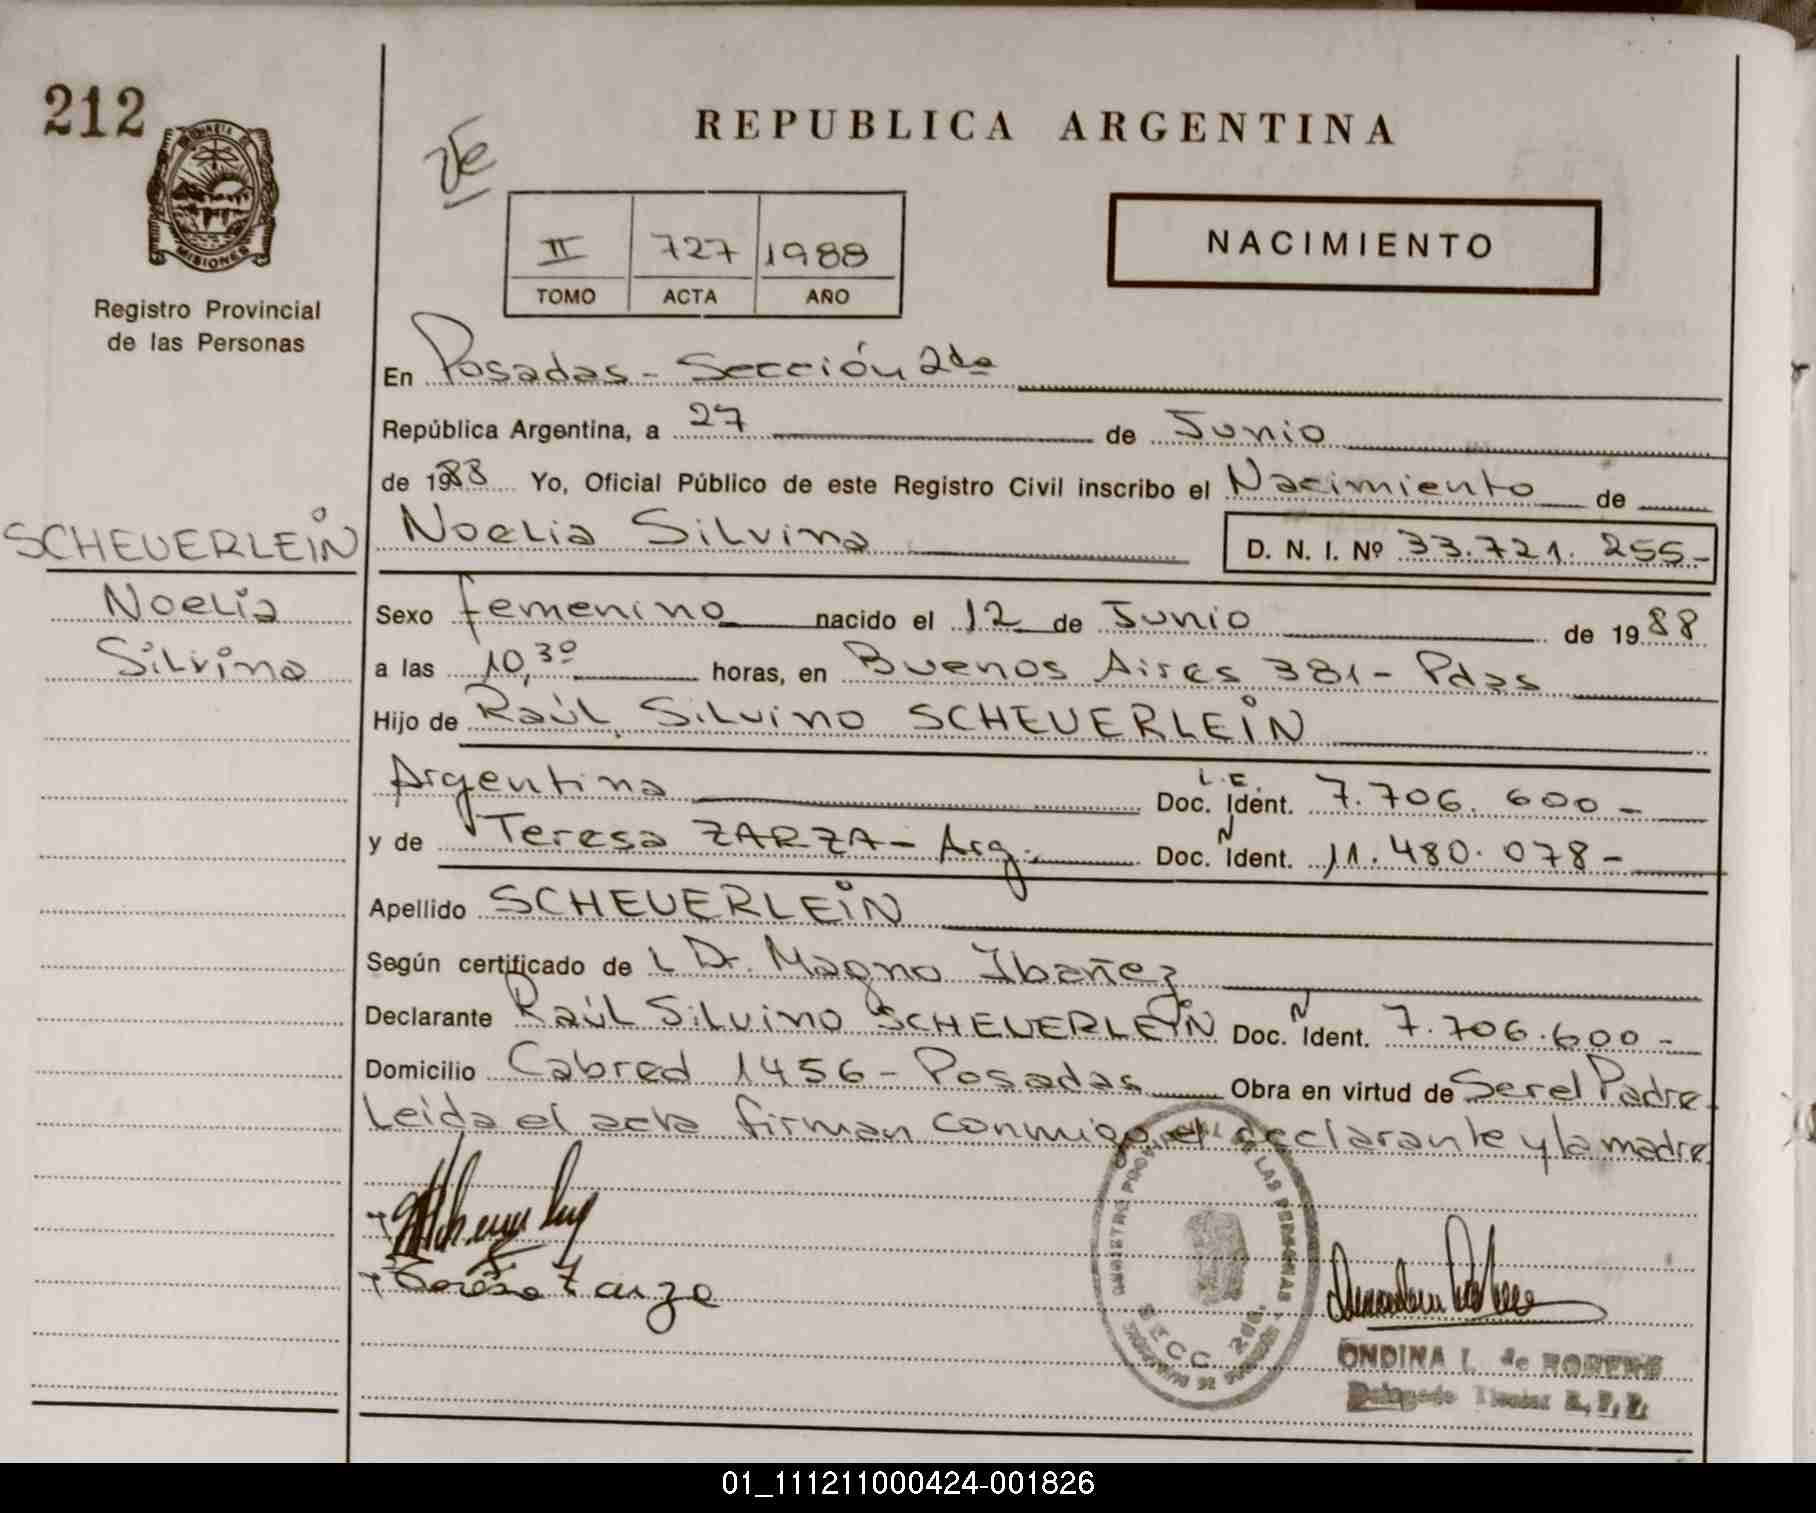 212
REPUBLICA ARGENTINA
MISIONES
Registro Provincial
de las Personas
II 727 1988
TOMO ACTA AÑO
NACIMIENTO
En Posadas - Sección 2da
República Argentina, a 27 de Junio
de 1988 Yo, Oficial Público de este Registro Civil inscribo el Nacimiento de
SCHEUERLEIN
Noelia
Silvina
Noelia Silvina D. N. I. Nº 33.721.255-
Sexo femenino nacido el 12 de Junio de 1988
a las 10,30 horas, en Buenos Aires 381- Pdas
Hijo de Raúl Silvino SCHEUERLEIN
Argentina L.E. Doc. Ident. 7.706.600-
y de Teresa ZARZA- Arg. Doc. N Ident. 11.480.078-
Apellido SCHEUERLEIN
Según certificado de L Dr. Magno Ibañez
Declarante Raúl Silvino SCHEUERLEIN Doc. N Ident. 7.706.600-
Domicilio Cabred 1456- Posadas Obra en virtud de Ser el Padre
Leida el acta firman conmigo el declarante y la madre
Teresa Zarza
REGISTRO PROVINCIAL DE LAS PERSONAS
SECC. 2da.
ONDINA I. de
01_111211000424-001826